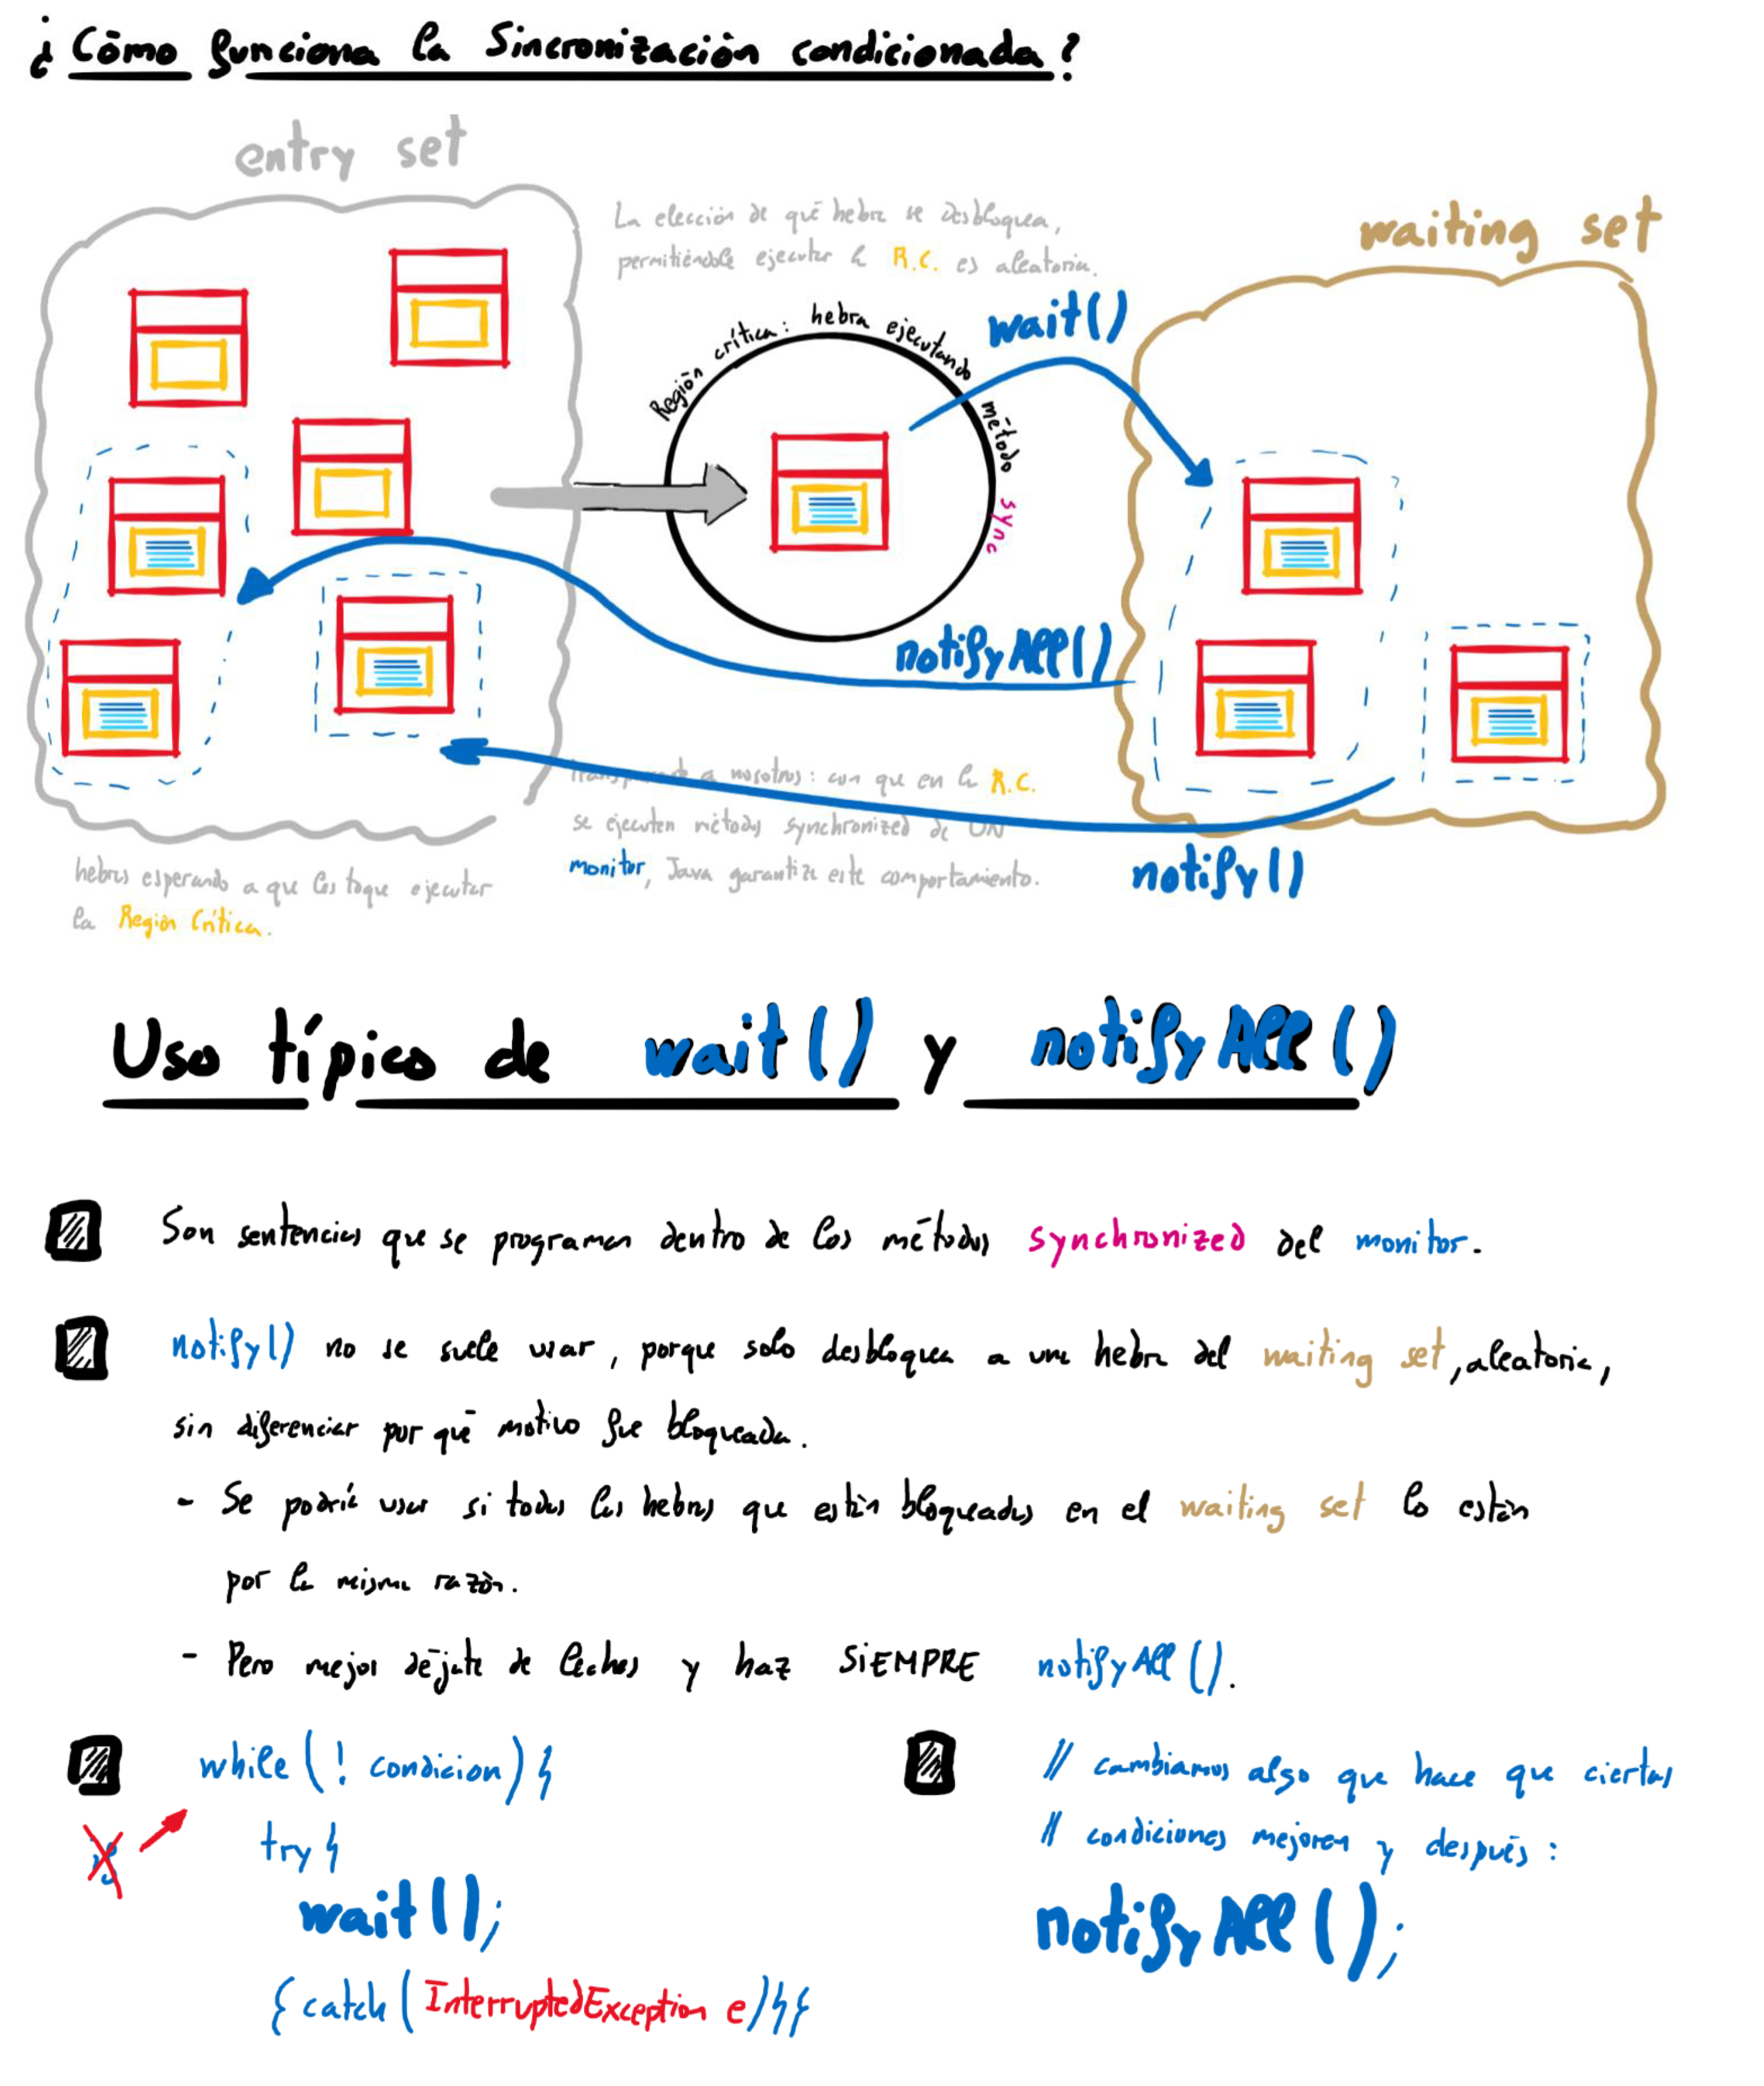 ¿Cómo funciona la Sincronización condicionada?
entry set
La elección de qué hebra se desbloquea,
permitiéndole ejecutar la R.C. es aleatoria.
waiting set
wait()
Región crítica: hebra ejecutando método sync
notifyAll()
a nosotros: con que en la R.C.
se ejecuten métodos synchronized de UN
monitor, Java garantiza este comportamiento.
notify()
hebras esperando a que les toque ejecutar
la Región Crítica.
Uso típico de wait() y notifyAll()
Son sentencias que se programan dentro de los métodos synchronized del monitor.
notify() no se suele usar, porque solo desbloquea a una hebra del waiting set, aleatoria,
sin diferenciar por qué motivo fue bloqueada.
- Se podría usar si todas las hebras que están bloqueadas en el waiting set lo están
por la misma razón.
- Pero mejor déjate de leches y haz SIEMPRE notifyAll().
while(! condicion){
try{
wait();
}catch(InterruptedException e){}
// cambiamos algo que hace que ciertas
// condiciones mejoren y después:
notifyAll();